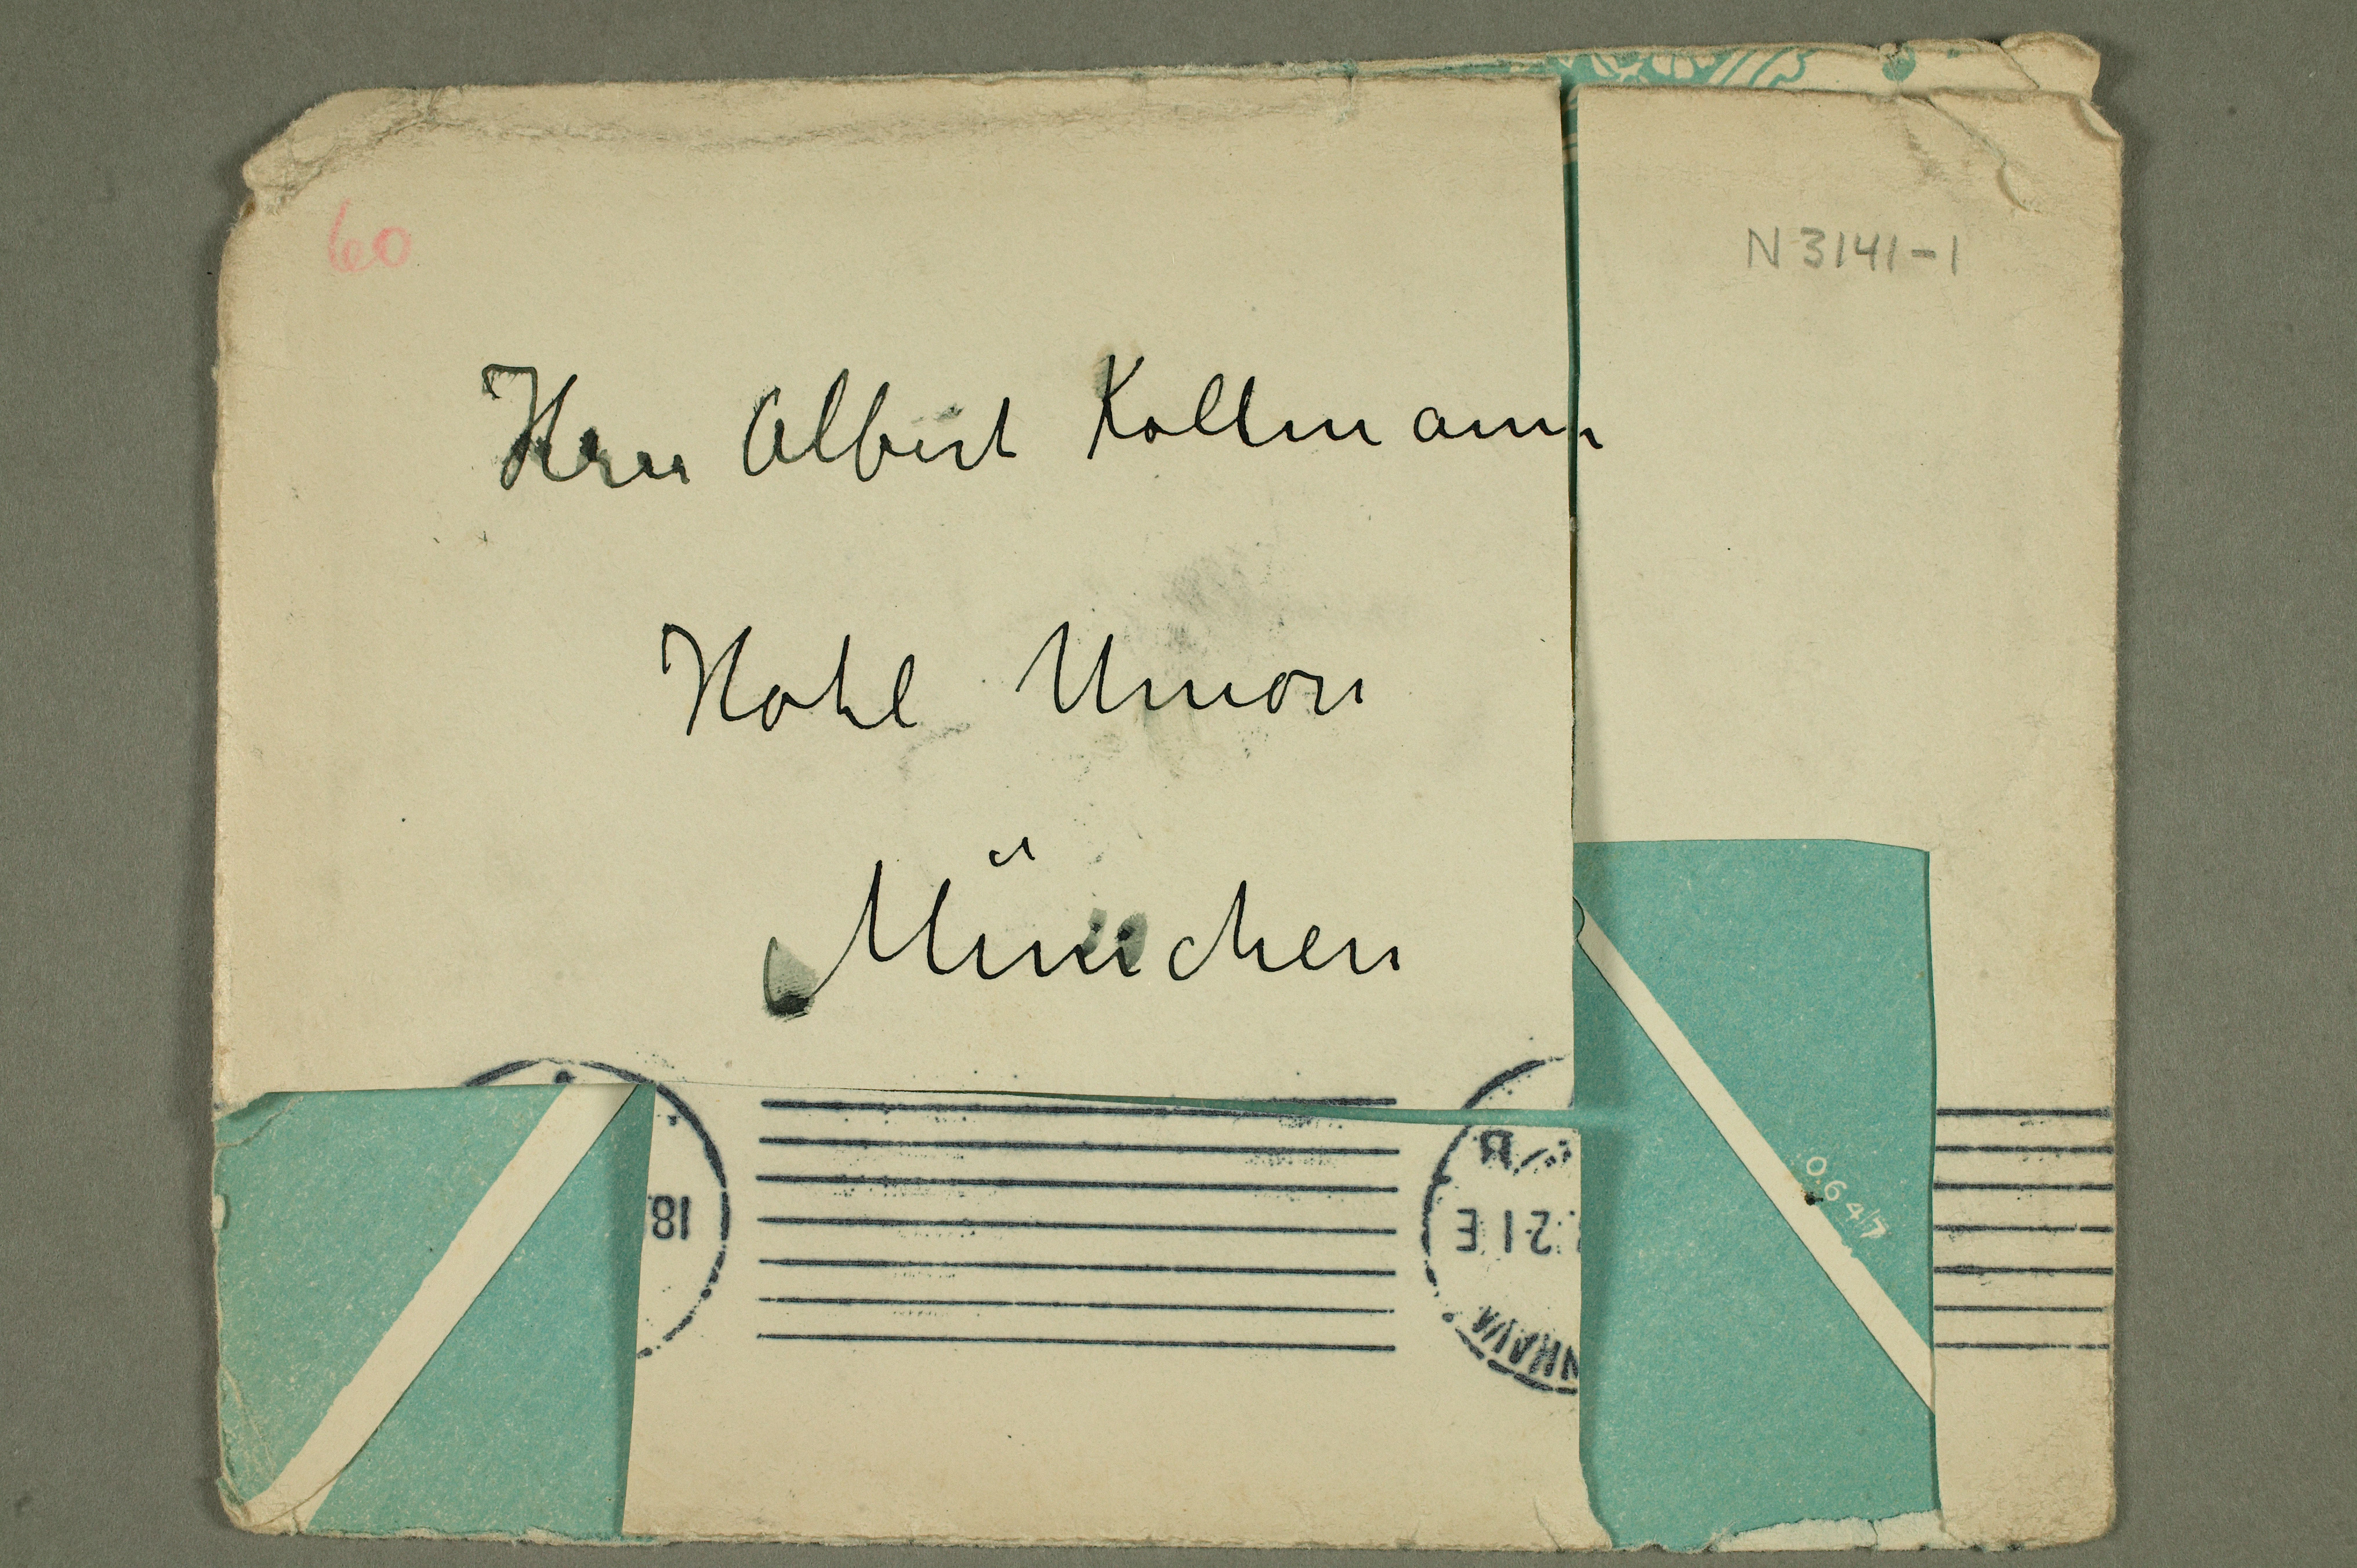 60
N3141-1
Herrn Albert Kollmann
Hotel Union
München
18
B
.21E
NHAVN
0.647